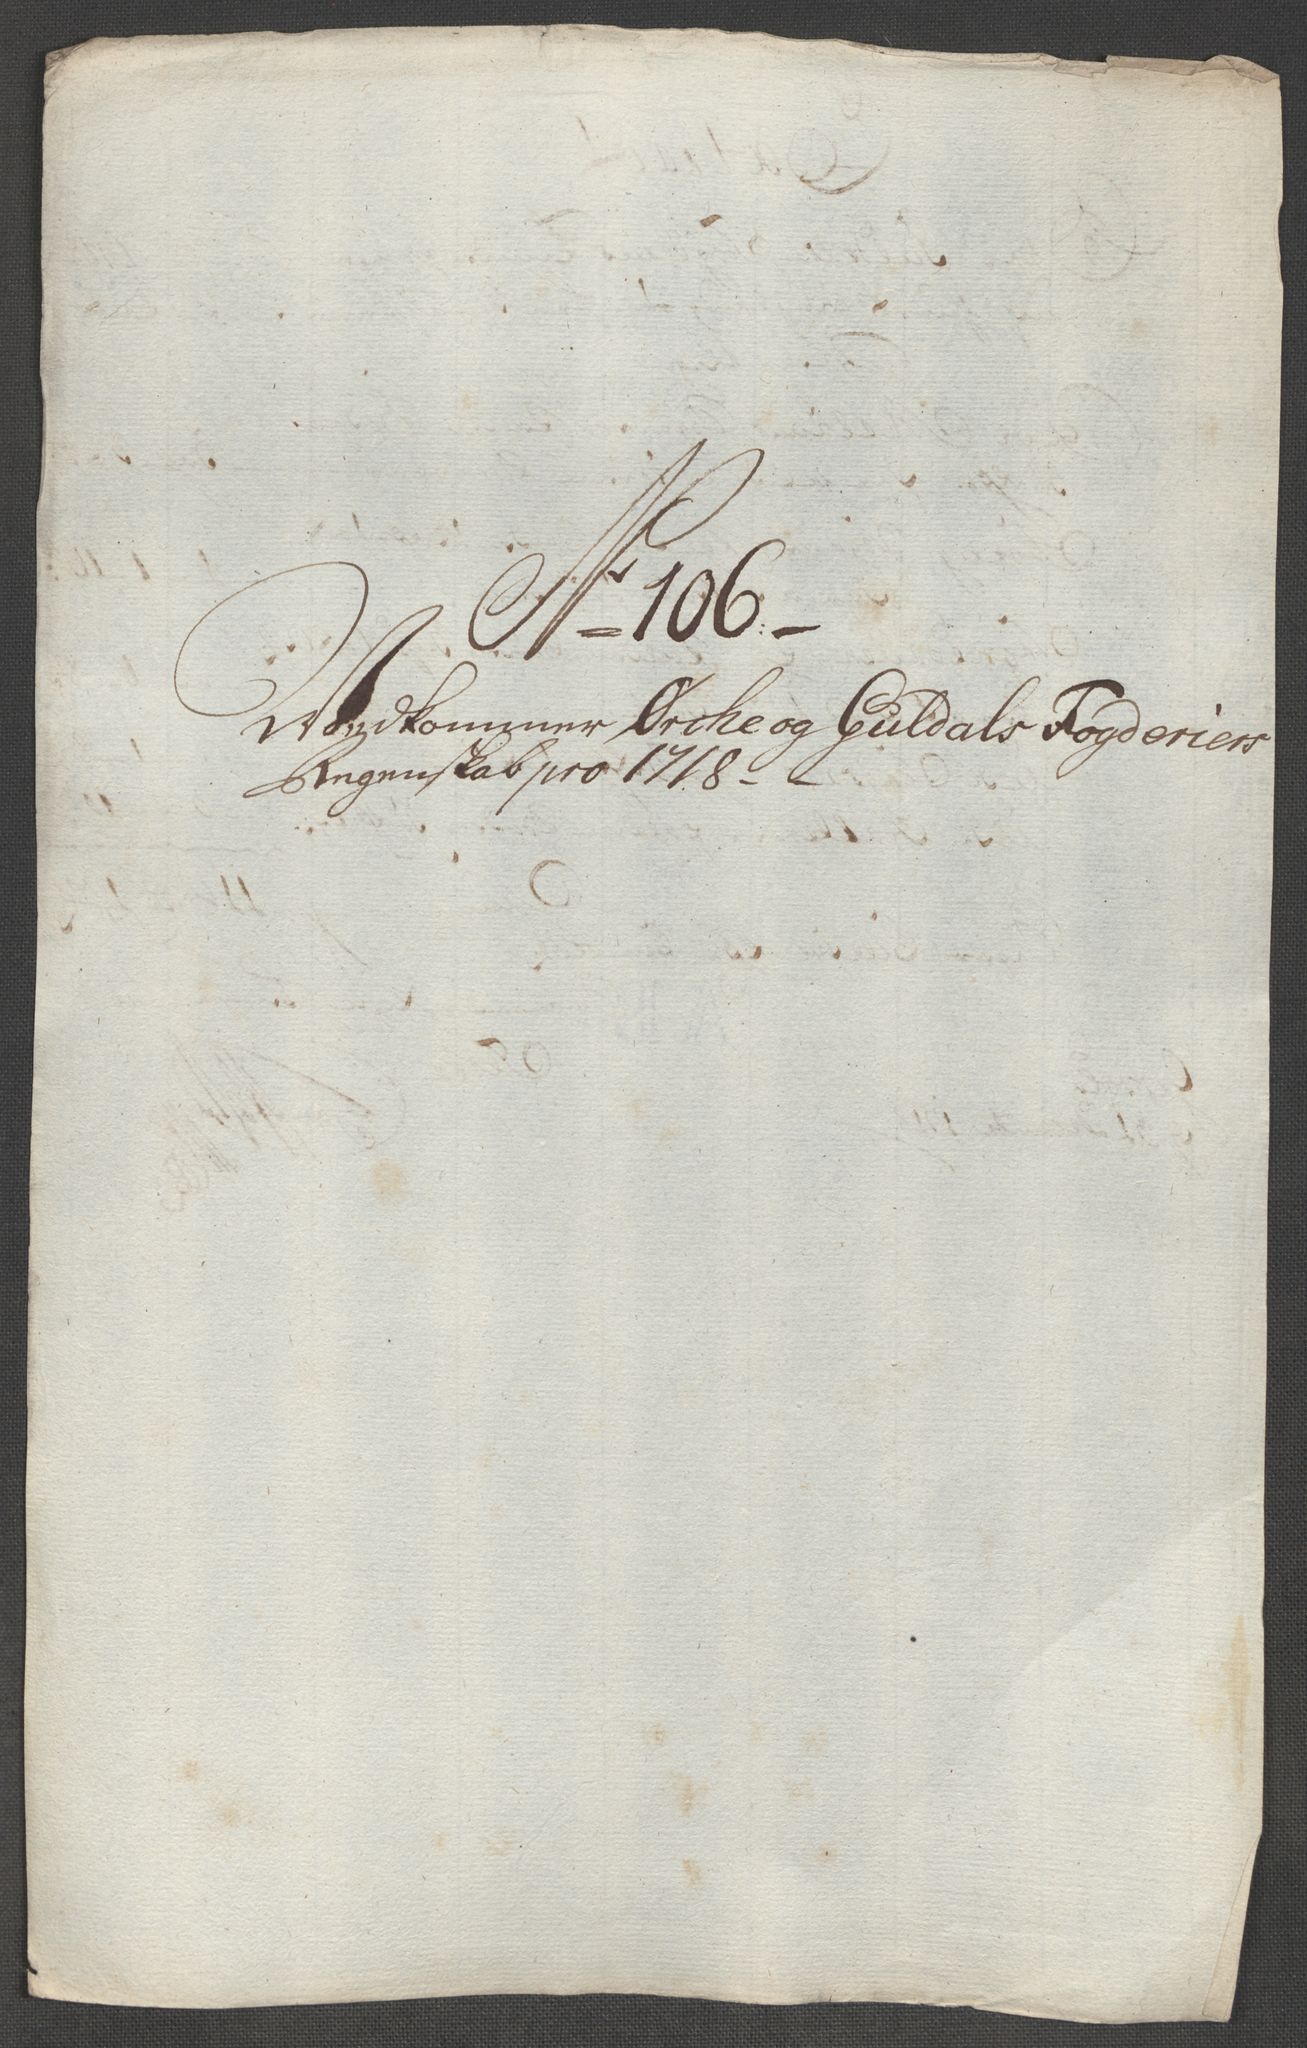 No 106.
Vedkommer Ørche og Guldals Fogderiers
Regenskab pro 1718